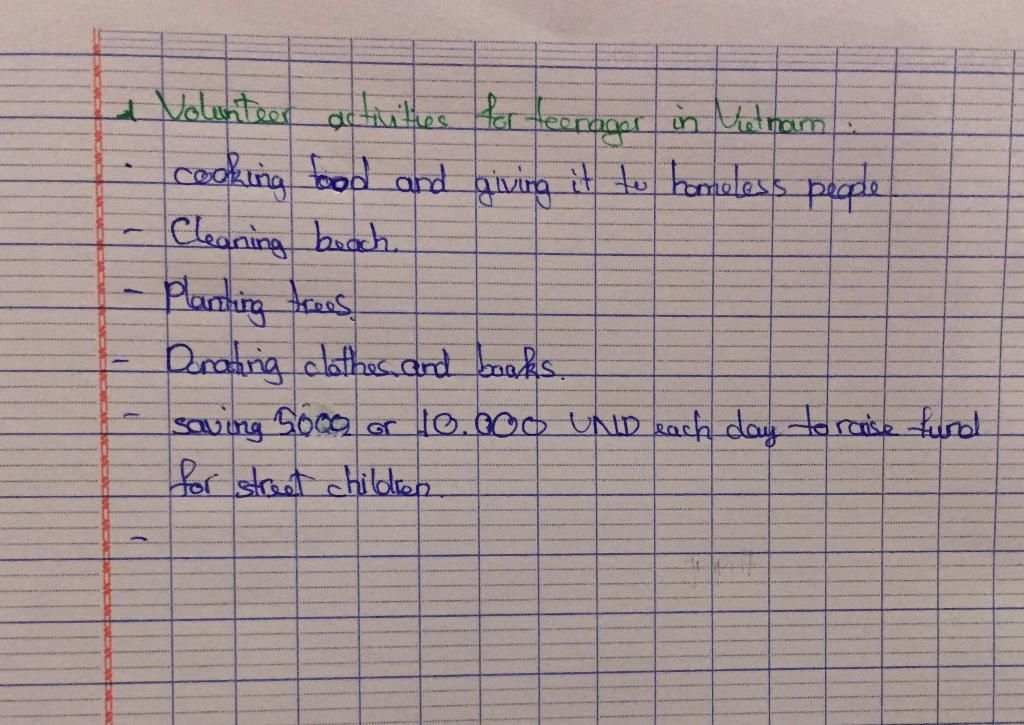 * Volunteer activities for teenager in Vietnam :
- cooking food and giving it to homeless people
- Cleaning beach.
- Planting trees.
- Donating clothes and books.
- saving 5000 or 10.000 VND each day to raise fund
for street children.
-